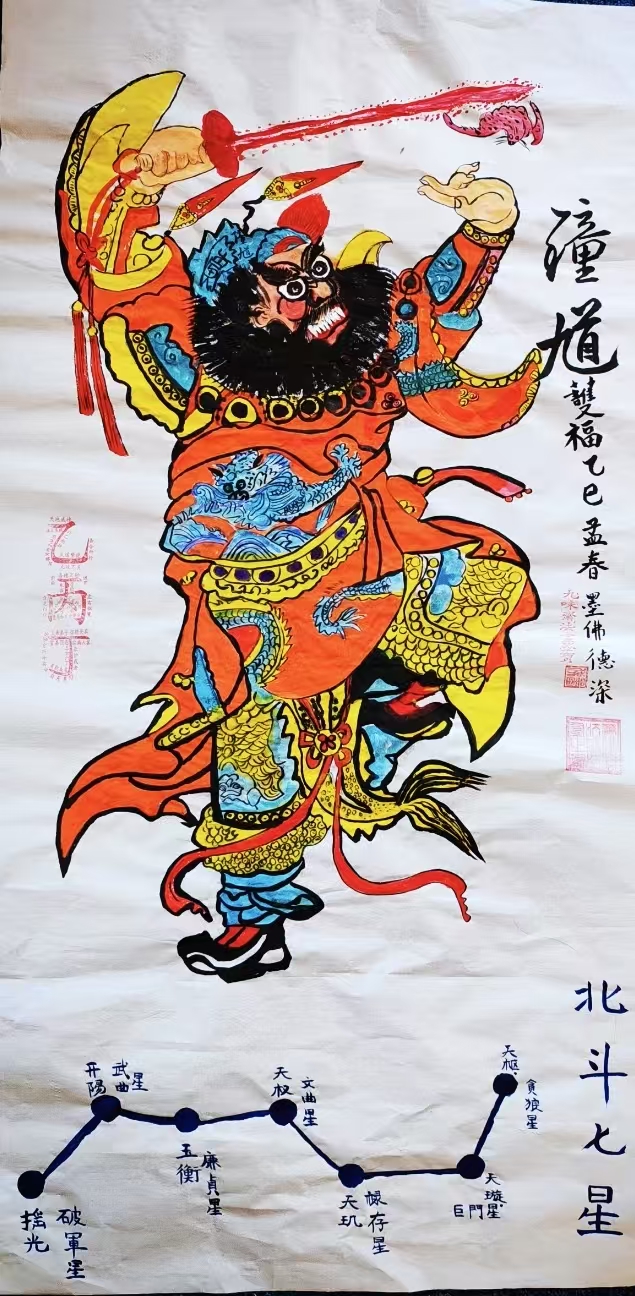 鐘馗
雙福乙巳孟春 墨佛德深
北斗七星
天樞
貪狼星
天璇星
巨門
天玑
祿存星
天权
文曲星
玉衡
廉貞星
开陽
武曲星
搖光
破軍星